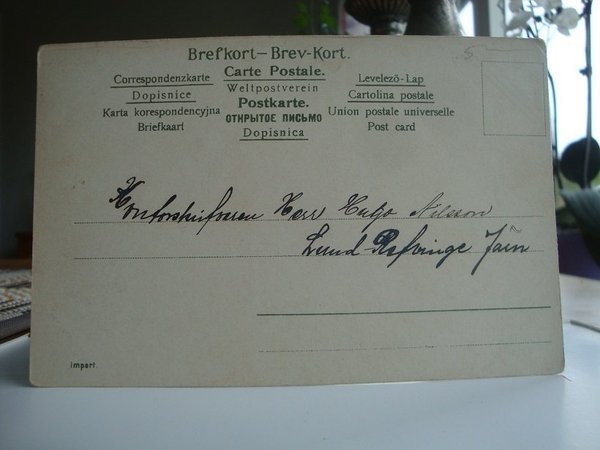 Brefkort—Brev-Kort.
Correspondenzkarte Carte Postale. Levelező-Lap
Dopisnice Weltpostverein Cartolina postale
Karta korespondencyjna Postkarte. Union postale universelle
Briefkaart ОТКРЫТОЕ ПИСЬМО Post card
Dopisnica
5
Kontorskrifvaren Herr Hugo Nilsson
Lund
import.